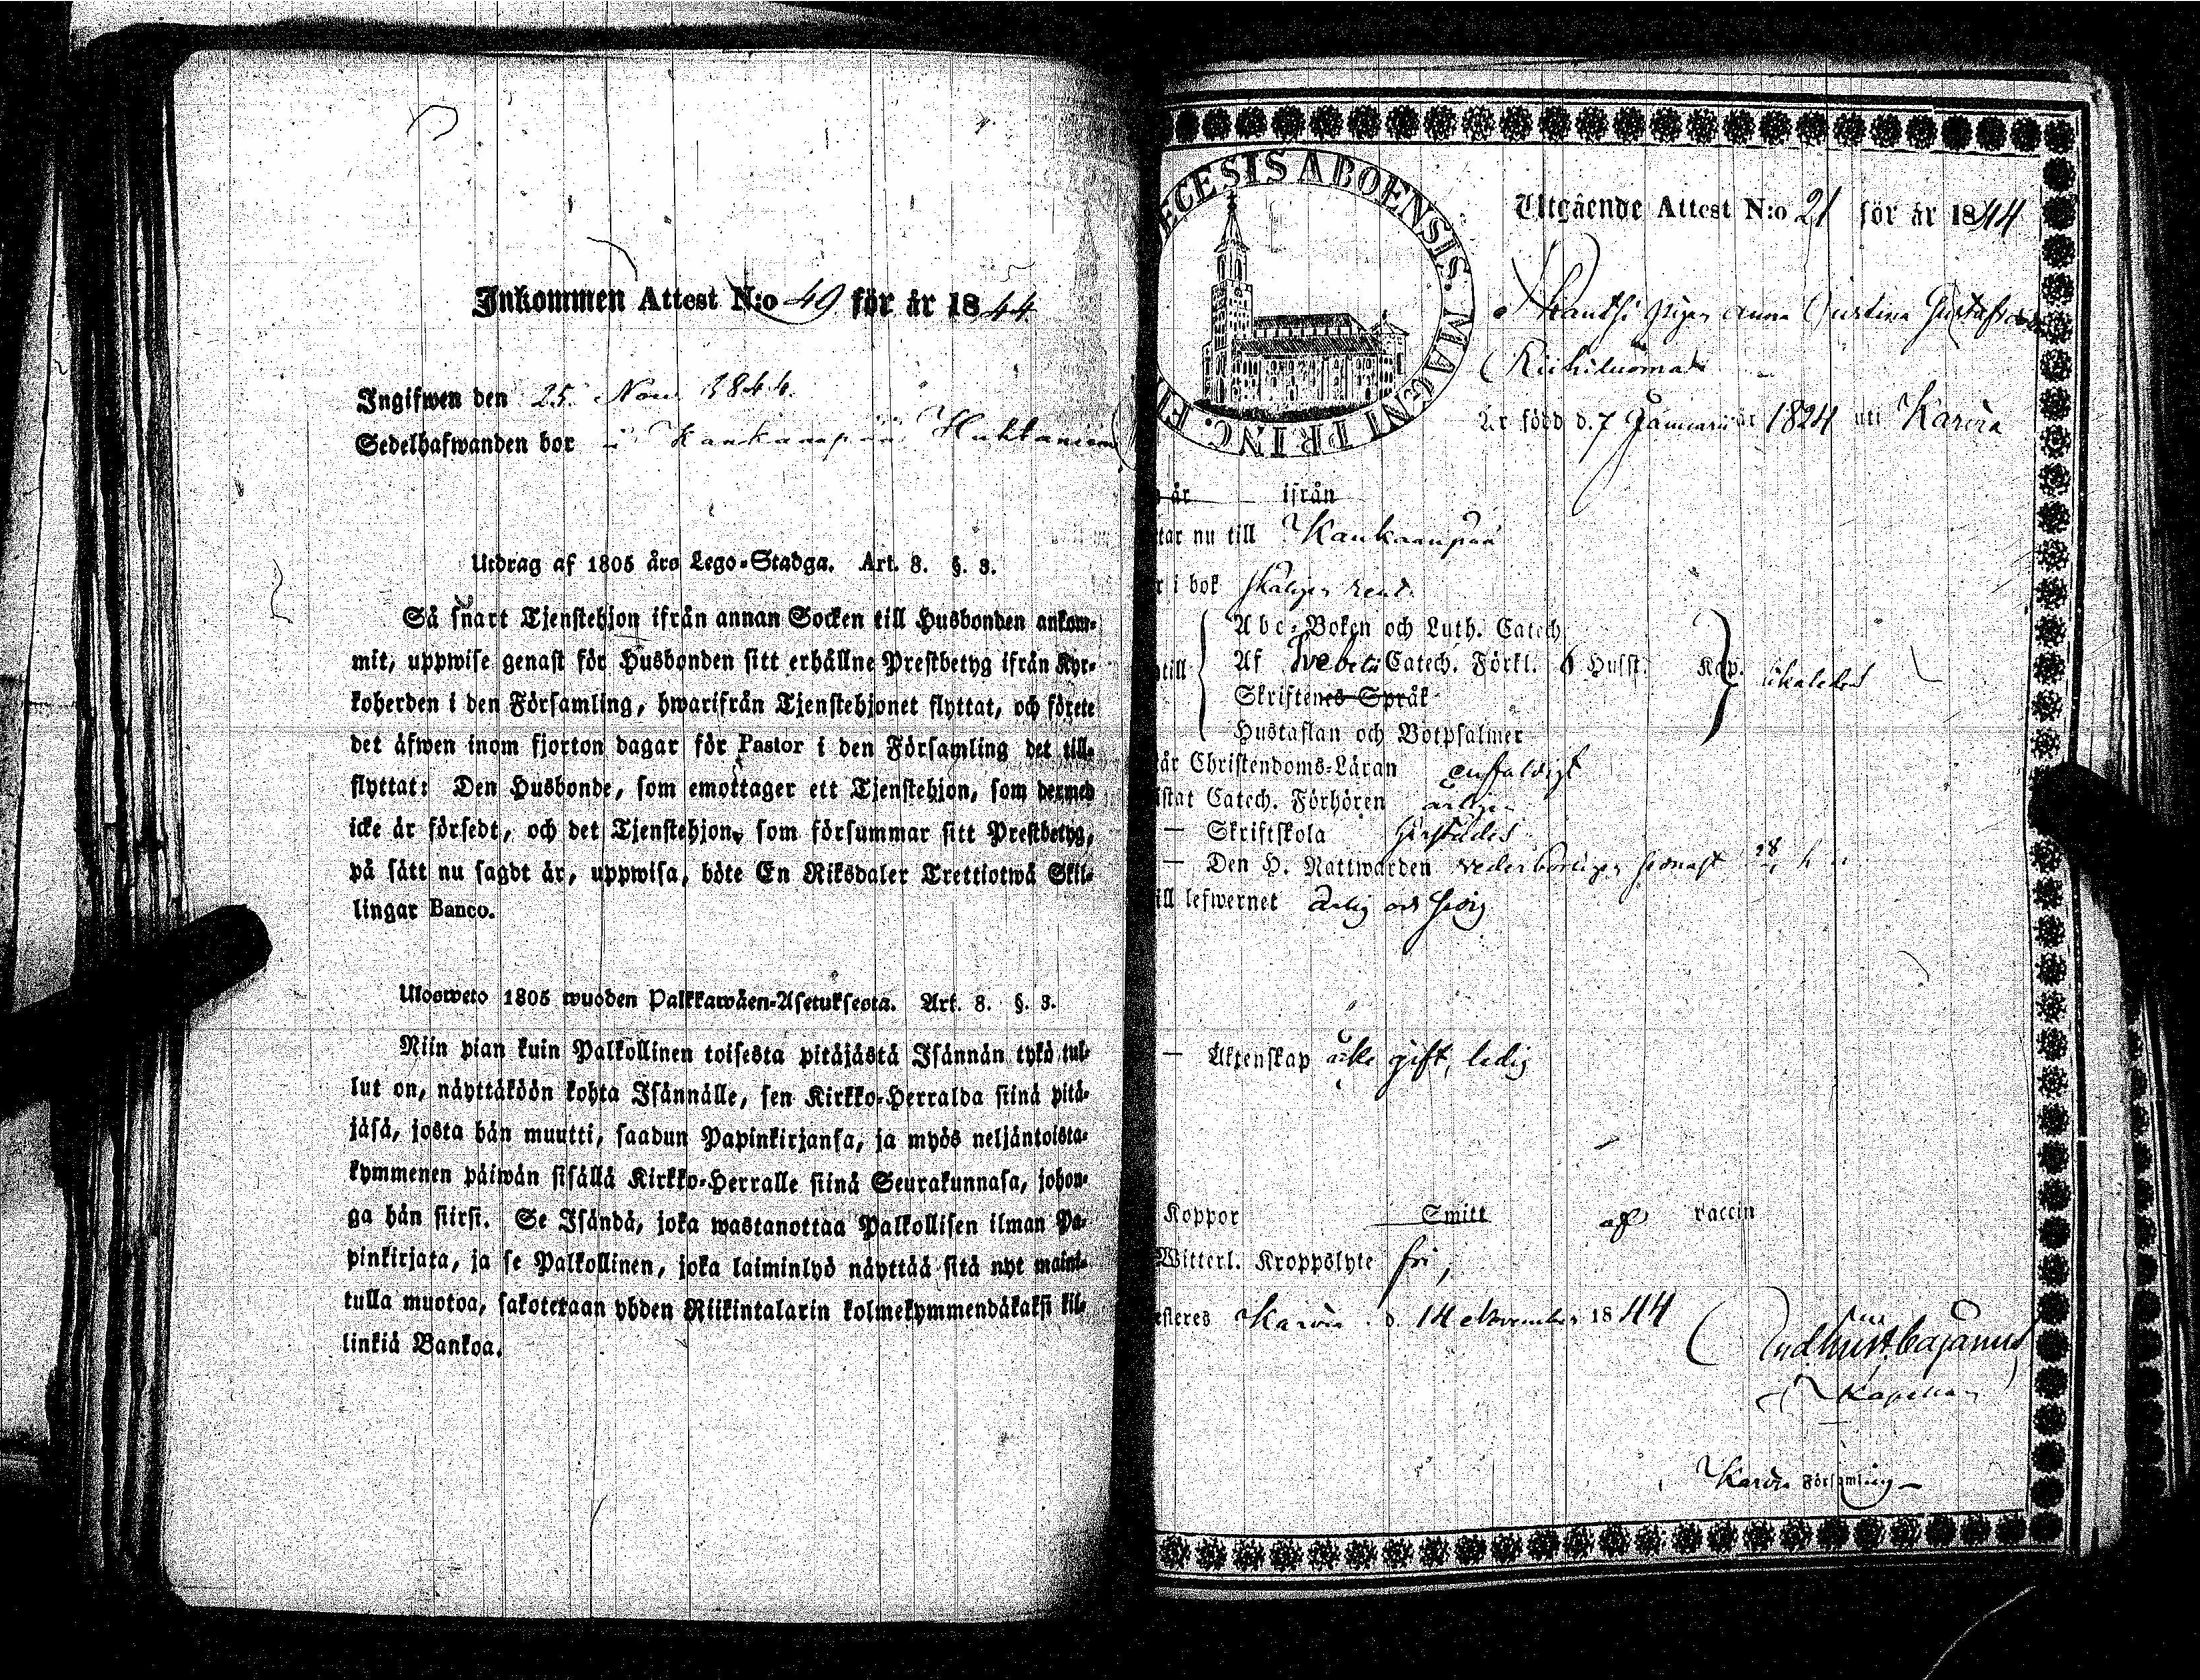 Inkommen Attest N:o 49 för år 1844.
Ingifwen den 25. Nov. 1844.
Sedelhafwanden bor i Kankaanpää
Utdrag af 1805 års Lego-Stadga. Art. 8. §. 3.
Så snart Tjenstehjon ifrån annan Socken till Husbonden ankom-
mit, uppwise genast för Husbonden sitt erhållne Prestbetyg ifrån Kyr-
koherden i den Församling, hwarifrån Tjenstehjonet flyttat, och förete
det äfwen inom fjorton dagar för Pastor i den Församling det till-
flyttat: Den Husbonde, som emottager ett Tjenstehjon, som dermed
icke är försedt, och det Tjenstehjon, som försummar sitt Prestbetyg,
på sätt nu sagdt är, uppwisa, böte En Riksdaler Trettiotwå Skil-
lingar Banco.
Ulosweto 1805 wuoden Palkkawäen-Asetuksesta. Art. 8. §. 3.
Niin pian kuin Palkollinen toisesta pitäjästä Isännän tykö tul-
lut on, näyttäköön kohta Isännälle, sen Kirkko-Herralda siinä pitä-
jäsä, josta hän muutti, saadun Papinkirjansa, ja myös neljäntoista-
kymmenen päiwän sisällä Kirkko-Herralle siinä Seurakunnasa, johon-
ga hän siirsi. Se Isändä, joka wastanottaa Palkollisen ilman Pa-
pinkirjata, ja se Palkollinen, joka laiminlyö näyttää sitä nyt maini-
tulla muotoa, sakotetaan yhden Riikintalarin kolmekymmendäkaksi kil-
linkiä Bankoa.
ECESIS ABOENSIS. MAGNI PRINC. FI
Utgående Attest N:o 21 för år 1844
Pigan Anna Christina Gustafsdr
Riihiluoma
Är född d. 7 Januarii år 1824 uti Karvia
år ifrån
tar nu till Kankaanpää
r i bok
Abc-Boken och Luth. Catech.
till Af Svebelii Catech. Förkl. 6 Hufst. Kap.
Skriftenes Språk
Hustaflan och Botpsalmer
tår Christendoms-Läran enfaldigt
istat Catech. Förhören årligen
— Skriftskola härstädes
— Den H. Nattwarden vederbörligen senast
ill lefwernet ärlig och frejdig
— Äktenskap icke gift, ledig
Koppor Smitt af vaccin
Witterl. Kroppslyte fri,
esteres Karvia d. 14 November 1844
Cajanus
Kapellan
Karvia Församling